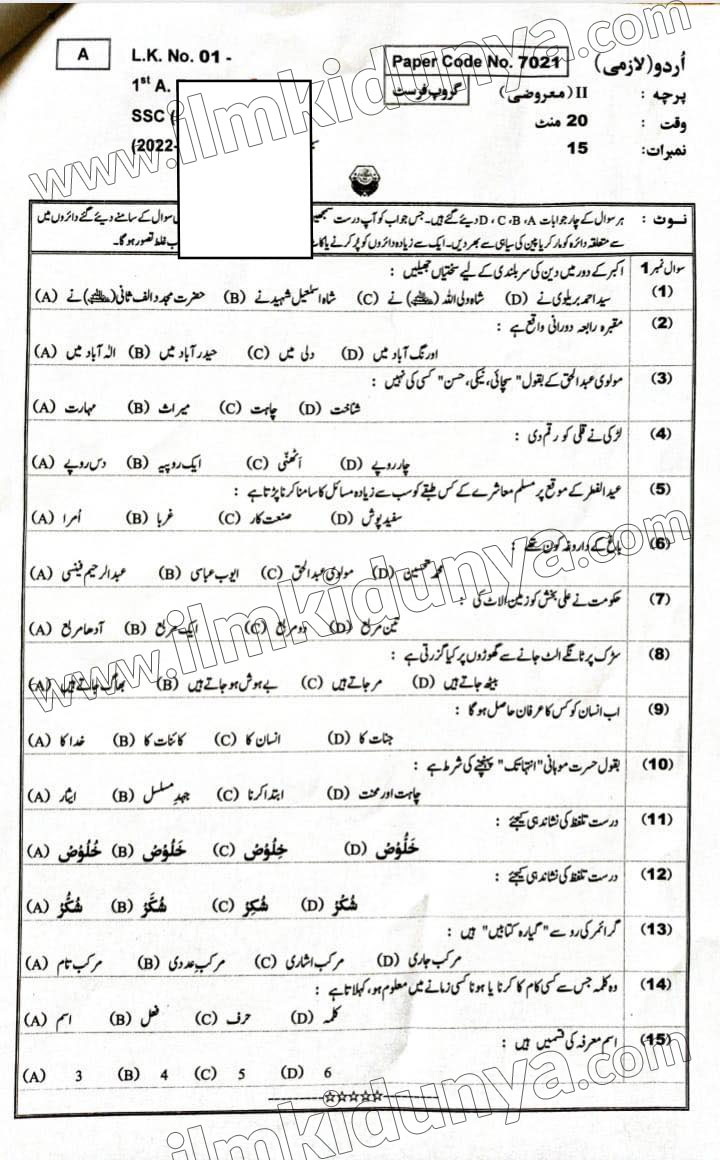 A
L.K. No. 01 -
Paper Code No. 7021
اُردو (لازمی)
1st A.
گروپ فرسٹ
پرچہ : II (معروضی)
SSC (
وقت : 20 منٹ
(2022-
نمبرات: 15
نوٹ : ہر سوال کے چار جوابات A، B، C، D دیئے گئے ہیں۔ جس جواب کو آپ درست سمجھیں سوال کے سامنے دیئے گئے دائروں میں
سے متعلقہ دائرہ کو مارکر یا پین کی سیاہی سے بھر دیں۔ ایک سے زیادہ دائروں کو پُر کرنے یا کاٹ غلط تصور ہوگا۔
سوال نمبر 1
(1) اکبر کے دور میں دین کی سربلندی کے لیے سختیاں جھیلیں :
(A) حضرت مجدد الف ثانی (رحمۃ اللہ علیہ) نے (B) شاہ اسمٰعیل شہید نے (C) شاہ ولی اللہ (رحمۃ اللہ علیہ) نے (D) سید احمد بریلوی نے
(2) مقبرہ رابعہ دورانی واقع ہے :
(A) الٰہ آباد میں (B) حیدر آباد میں (C) دلی میں (D) اورنگ آباد میں
(3) مولوی عبدالحق کے بقول "سچائی، نیکی، حسن" کسی کی نہیں :
(A) مہارت (B) میراث (C) چاہت (D) شناخت
(4) لڑکی نے قلی کو رقم دی :
(A) دس روپے (B) ایک روپیہ (C) اٹھنّی (D) چار روپے
(5) عید الفطر کے موقع پر مسلم معاشرے کے کس طبقے کو سب سے زیادہ مسائل کا سامنا کرنا پڑتا ہے :
(A) اُمرا (B) غربا (C) صنعت کار (D) سفید پوش
(6) باغ کے داروغہ کون تھے :
(A) عبدالرحیم فینسی (B) ایوب عباسی (C) مولوی عبدالحق (D) محمد تحسین
(7) حکومت نے علی بخش کو زمین الاٹ کی :
(A) آدھا مربع (B) ایک مربع (C) دو مربع (D) تین مربع
(8) سڑک پر تانگے الٹ جانے سے گھوڑوں پر کیا گزرتی ہے :
(A) بھاگ جاتے ہیں (B) بے ہوش ہو جاتے ہیں (C) مر جاتے ہیں (D) بیٹھ جاتے ہیں
(9) اب انسان کو کس کا عرفان حاصل ہوگا :
(A) خدا کا (B) کائنات کا (C) انسان کا (D) جنات کا
(10) بقول حسرت موہانی "انتہا تک" پہنچنے کی شرط ہے :
(A) ایثار (B) جہدِ مسلسل (C) ابتدا کرنا (D) چاہت اور محنت
(11) درست تلفظ کی نشاندہی کیجئے :
(A) خُلُوْصْ (B) خَلُوْصْ (C) خِلُوْصْ (D) خَلُّوْصْ
(12) درست تلفظ کی نشاندہی کیجئے :
(A) شُکُّرْ (B) شُکَّرْ (C) شُکِرْ (D) شُکْرْ
(13) گرائمر کی رو سے "گیارہ کتابیں" ہیں :
(A) مرکب تام (B) مرکب عددی (C) مرکب اشاری (D) مرکب جاری
(14) وہ کلمہ جس سے کسی کام کا کرنا یا ہونا کسی زمانے میں معلوم ہو، کہلاتا ہے :
(A) اسم (B) فعل (C) حرف (D) کلمہ
(15) اسم معرفہ کی قسمیں ہیں :
(A) 3 (B) 4 (C) 5 (D) 6
www.ilmkidunya.com
www.ilmkidunya.com
www.ilmkidunya.com
ilmkidunya.com